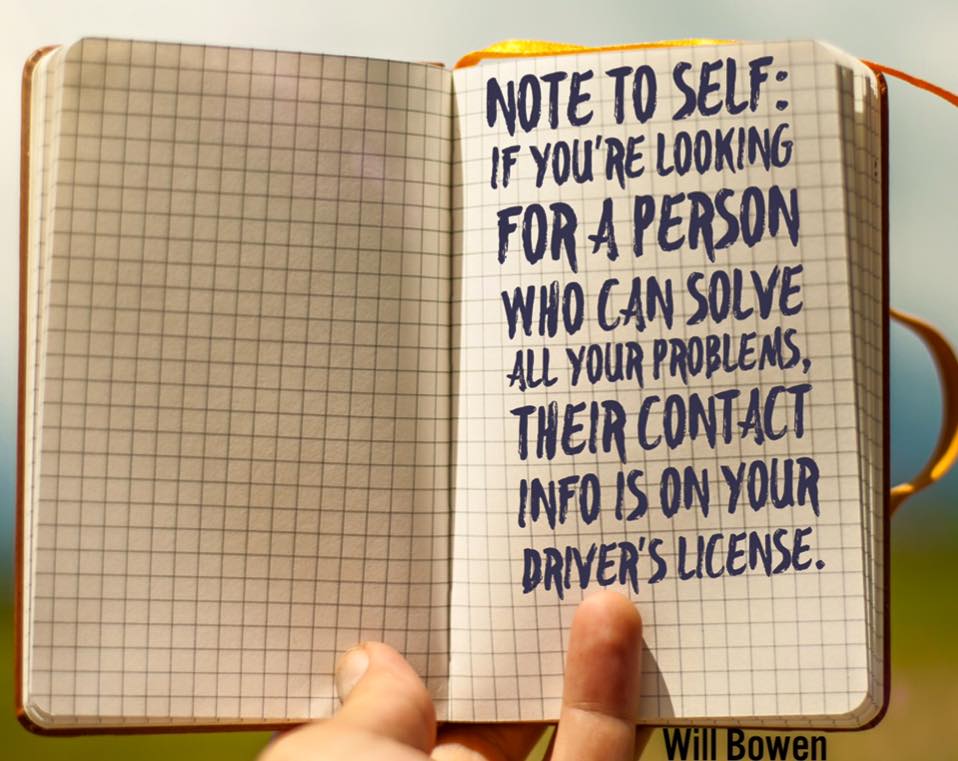 NOTE TO SELF:
IF YOU'RE LOOKING
FOR A PERSON
WHO CAN SOLVE
ALL YOUR PROBLEMS,
THEIR CONTACT
INFO IS ON YOUR
DRIVER'S LICENSE.
Will Bowen